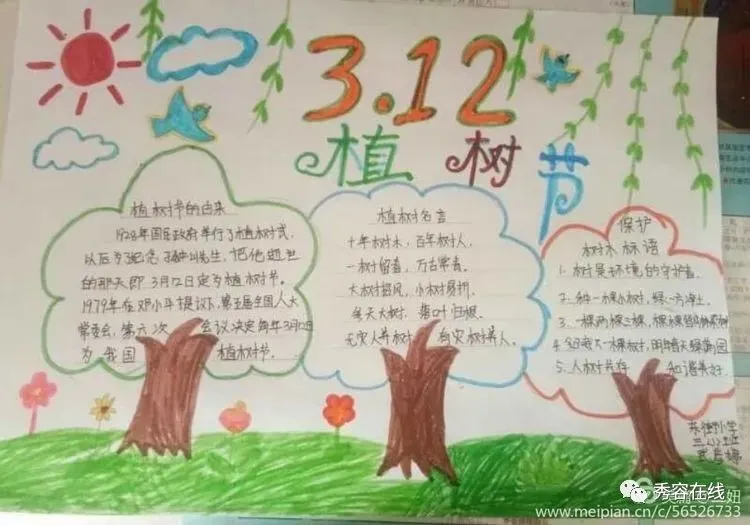 3.12
植 树 节
植树节的由来
1928年国民政府举行了植树式,
以后为了纪念孙中山先生,把他逝世
的那天即3月12日定为植树节。
1979年在邓小平提议下,第五届全国人大
常委会,第六次 会议决定每年3月12日
为 我国 植树节。
植树名言
十年树木,百年树人。
一树留香,万古常青。
大树招风,小树易折。
参天大树,落叶归根。
无灾人养树 有灾树养人。
保护
树木标语
1、树是环境的守护者。
2、种一棵小树,绿一方净土。
3、一棵两棵三棵,棵棵
4、今日我,一棵树,明年春天绿满园
5、人树共存 和谐美好
小学
三(2)班
秀容在线
www.meipian.cn/c/56526733